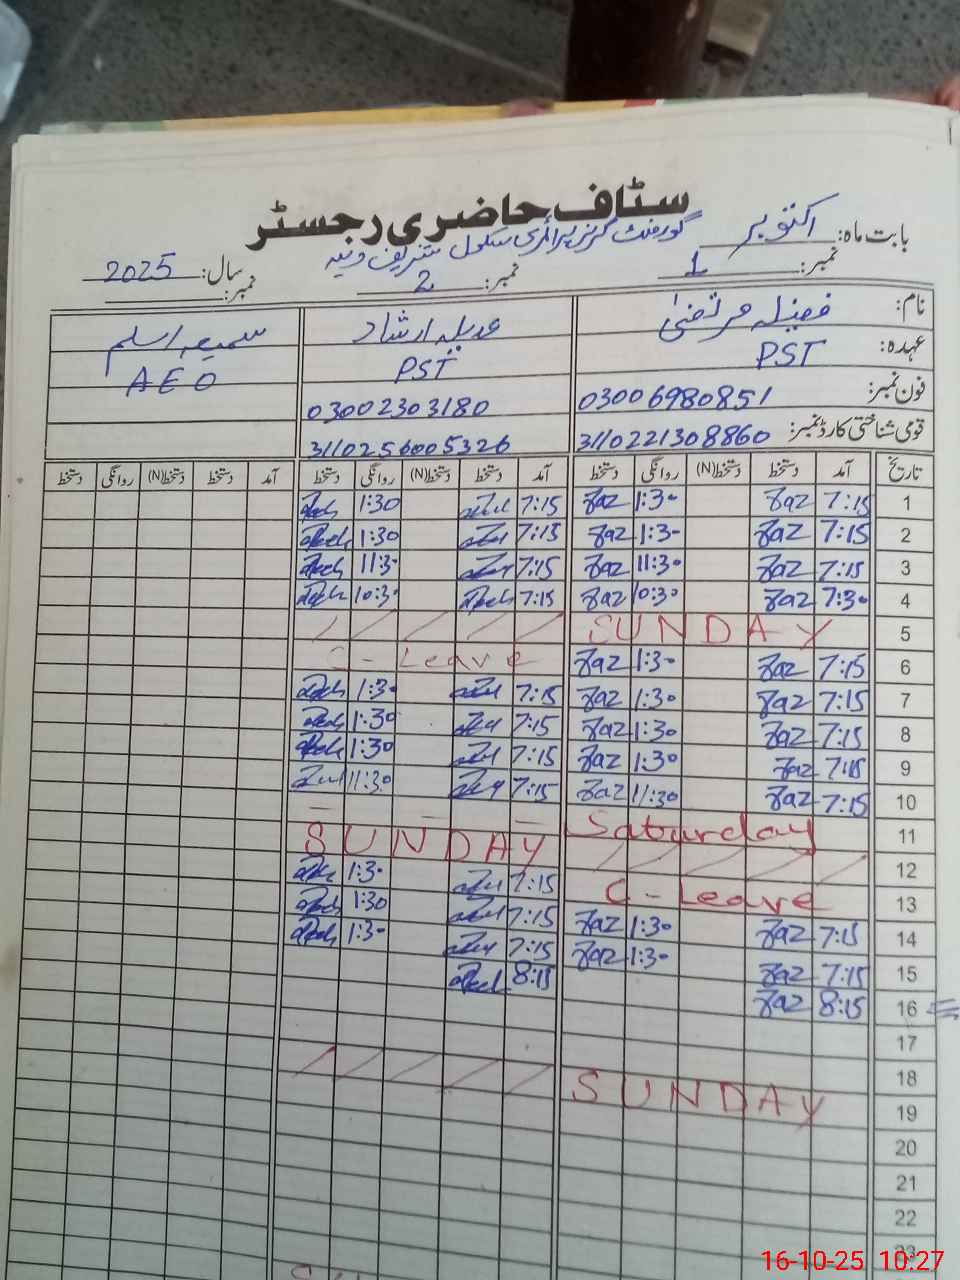 سٹاف حاضری رجسٹر
بابت ماہ: اکتوبر
گورنمنٹ گرلز پرائمری سکول
سال: 2025
نمبر: 1 نمبر: 2 نمبر:
نام: فضیلہ مرتضیٰ عدیلہ ارشاد سمیعہ اسلم
عہدہ: PST PST AEO
فون نمبر: 03006980851 03002303180
قومی شناختی کارڈ نمبر: 3110221308860 3110256005326
تاریخ آمد دستخط دستخط(N) روانگی دستخط آمد دستخط دستخط(N) روانگی دستخط آمد دستخط دستخط(N) روانگی دستخط
1 7:15 Faz 1:30 Faz 7:15 1:30
2 7:15 Faz 1:30 Faz 7:15 1:30
3 7:15 Faz 11:30 Faz 7:15 11:30
4 7:30 Faz 10:30 Faz 7:15 10:30
5 SUNDAY
6 7:15 Faz 1:30 Faz C-Leave
7 7:15 Faz 1:30 Faz 7:15 1:30
8 7:15 Faz 1:30 Faz 7:15 1:30
9 7:15 Faz 1:30 Faz 7:15 1:30
10 7:15 Faz 11:30 Faz 7:15 11:30
11 Saturday
12 SUNDAY
13 C-Leave 7:15 1:30
14 7:15 Faz 1:30 Faz 7:15 1:30
15 7:15 Faz 1:30 Faz 7:15 1:30
16 8:15 Faz 8:15
17
18
19 SUNDAY
20
21
22
23
16-10-25 10:27